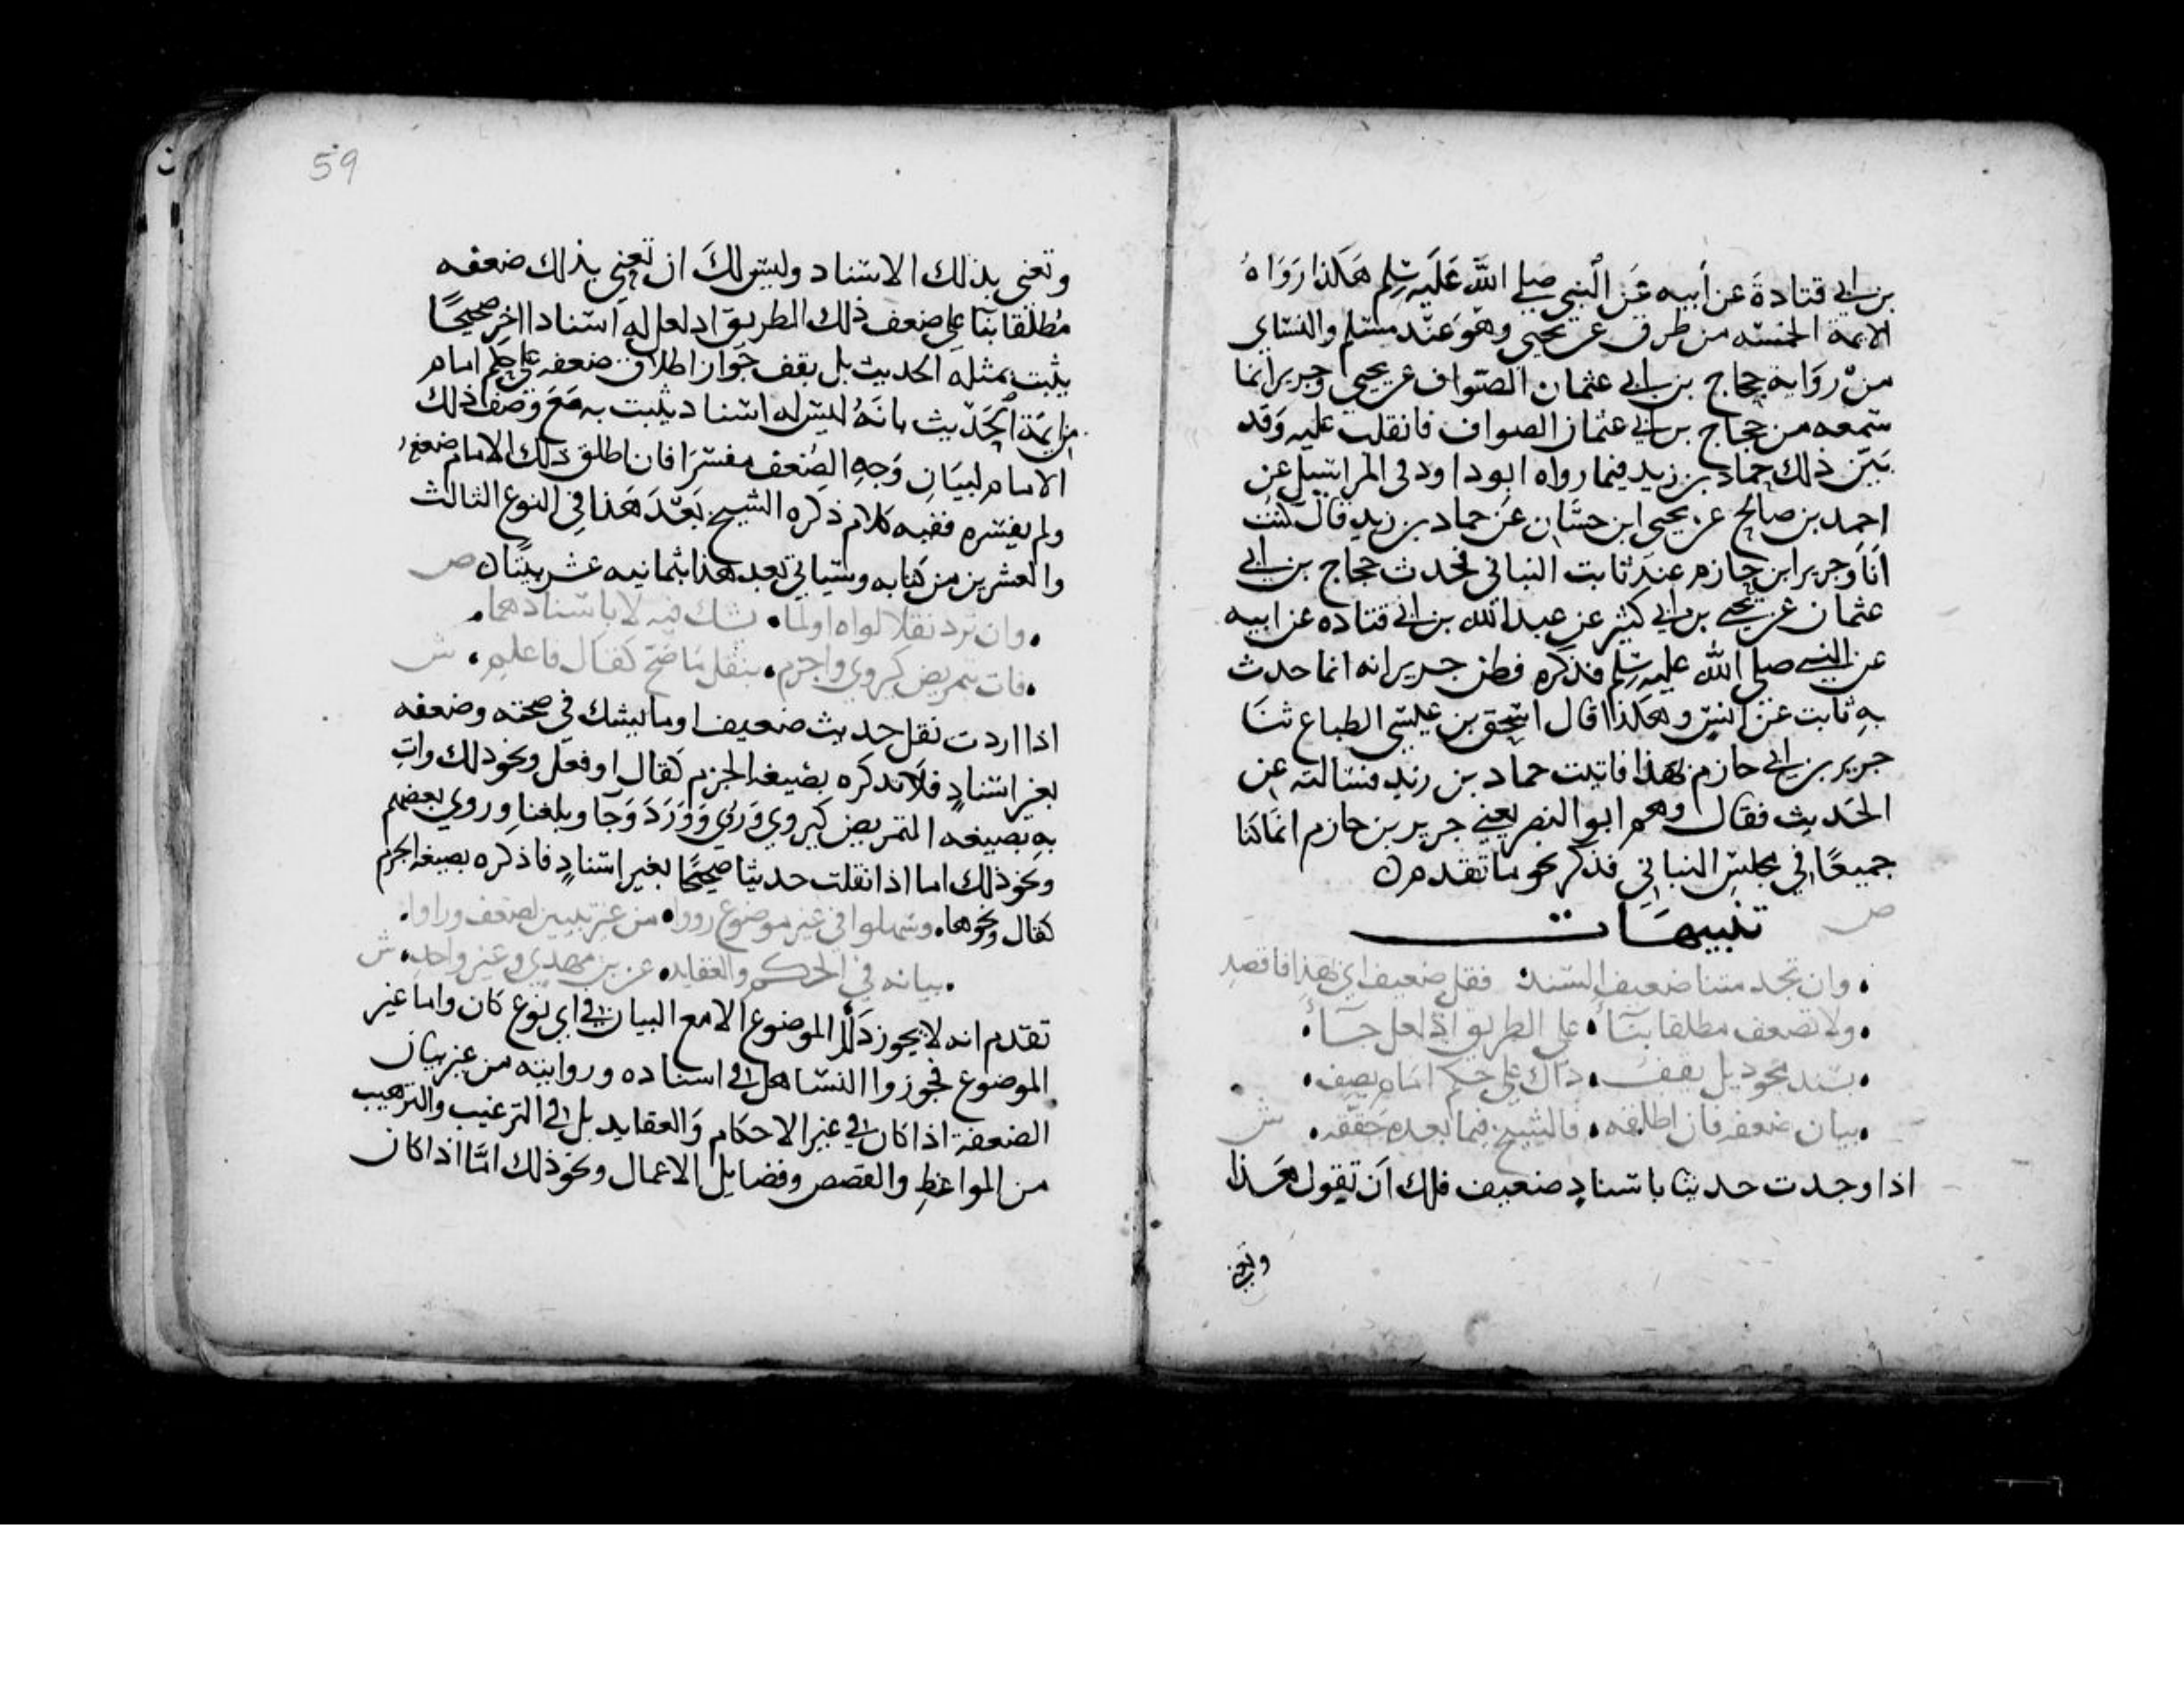 بن ابي قتادةَ عن أبيه عَن النبي صلى اللهَ عَلَيه وسلم هَكذا رَوَاهُ
الايمة الخمسه من طرق عن يحيى وهوَ عند مسلم والنساي
منْ روَاية حجاج بن ابي عثمان الصواف عن يحيى وجرير انما
سمعه من حجاج بن ابي عثمان الصواف فانقلب عليه وَقد
بَيّن ذلك حماد بن زيد فيما رواه ابو داود في المراسيل عن
احمد بن صالح عن يحيى ابن حسَّان عَن حماد بن زيد قال كنتُ
انَا وَجرير ابن حازم عندَ ثابت البناني فحدث حجاج بن ابي
عثمان عن يحيى بن ابي كثير عن عبد الله بن ابي قتاده عن ابيه
عن النبي صلى الله عليه وسلم فذكره فظن جرير انه انما حدث
بهِ ثابت عن انس وهكذا قال اسحق بن عيسى الطباع ثنَا
جرير بن ابي حازم بهذا فاتيت حماد بن زيد فسالته عن
الحَديث فقال وهم ابو النضر يعني جرير بن حازم انمَا كنا
جميعًا في مجلس البناني فذكر نحو ما تقدم
ص
تنبيهَات
وان تجد متنا ضعيف السند فقل ضعيف اي بهذا فاقصد
ولا تضعف مطلقا بنَاءً على الطريق اذ لعل جاءَ
بسند مجود بل يقفُ ذاك على حكم امام يصف
بيان ضعفه فان اطلقه فالشيخ فيما بعده حَققه ش
اذا وجدت حديثا باسنادٍ ضعيف فلك اَن تقول هَذا
وتعني
59
وتعني بذلك الاسناد وليس لكَ ان تعني بذلك ضعفه
مُطلقا بنَا على ضعف ذلك الطريق اذ لعل له اسنادا اخر صحيحًا
يثبت بمثله الحديث بل يقف جَواز اطلاق ضعفه على حكم امام
من ايمة الحَديث بانهُ ليس له اسناد يثبت به مَعَ وَصف ذلك
الامام لبيَانِ وَجهِ الضعف مفسرَا فان اطلق ذلك الامام ضعفه
ولم يفسره ففيه كلام ذكره الشيخ بَعْدَ هَذا في النوع الثالث
والعشرين من كتابه وسياتي بعد هذا بثمانيه عشر بيتًا ص
وان ترد نقلا لواه او لما يشك فيه لا باسنادهما
فات بتمريض كيروي واجزم بنقل مَا صَح كقال فاعلم ش
اذا اردت نقل حديث ضعيف او ما يشك في صحته وضعفه
بغير اسنادٍ فلا تذكره بصيغه الجزم كقال وفعل ونحو ذلك وات
بهِ بصيغه التمريض كيروي وَرُوي وَوَرَدَ وَجَا وبلغنا وروي بعضهم
ونحو ذلك اما اذا نقلت حديثا صحيحًا بغير اسنادٍ فاذكره بصيغه الجزم
كقال ونحوها وسهلوا في غير موضوع رووا من غير تبيين لضعف وراوا
بيانه في الحكم والعقايد عن بن مهدي وغير واحد ش
تقدم انه لا يجوز ذكر الموضوع الا مع البيان في اي نوع كان واما غير
الموضوع فجوزوا التساهل في اسناده وروايته من غير بيان
الضعفه اذا كان في غير الاحكام وَالعقايد بل في الترغيب والترهيب
من المواعظ والقصص وفضايل الاعمال ونحو ذلك امَّا اذا كان